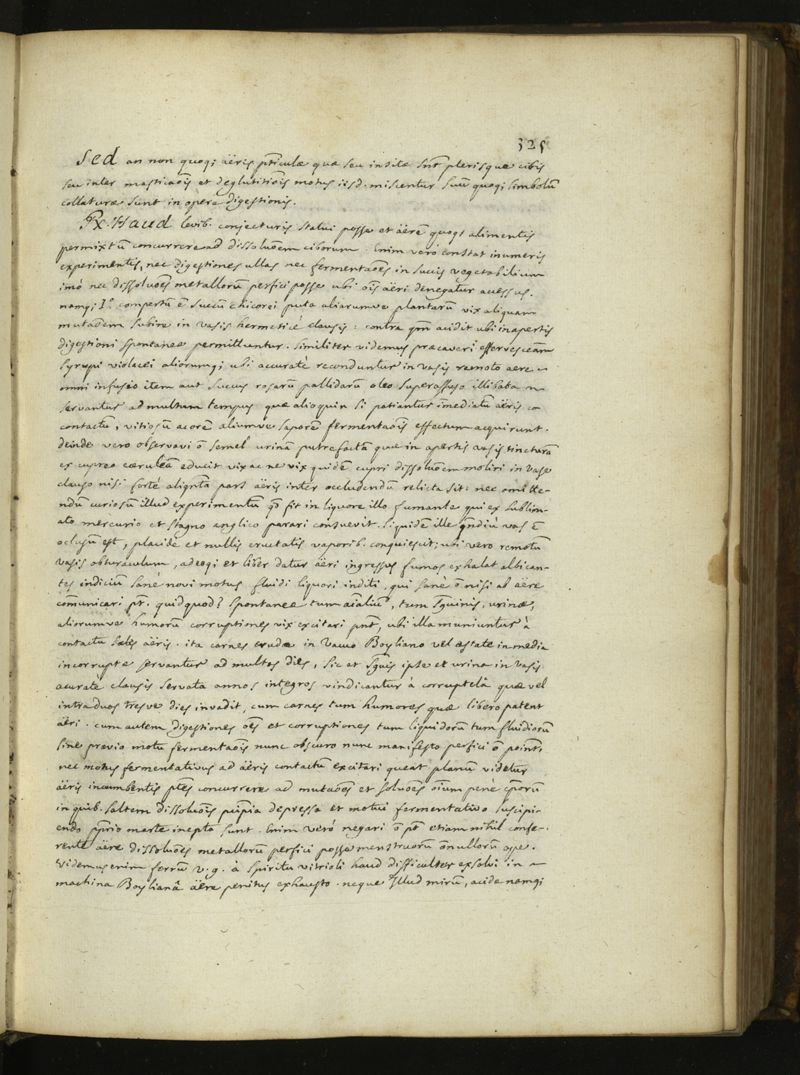 325
Sed an non quoq; aëris pticulæ quæ seu insitæ snt plerisque cibis
seu inter masticaōis et deglutitiōis motus iisd. miscentur suū quoq; simbolū
collaturæ sunt in opere digestionis.
Rx. Haud levib. conjecturis statui posse et äerē quoq; alimentis
permixtū concurrere ad dissoluōem ciborum. Enim verò constat inumeris
experimentis, nec digestiones ullas nec fermentaōes in succis vegetabilium
imò nec dissoluōes metallorū perfici posse ubi oīs aëri denegatur accessus.
namq; 1.º compertū ē succū chicorei puta aliarumve plantarū vix aliquam
mutaōem subire in vasis hermeticè clausis : contra qm̄ accidit ubi in apertis
digestioni spontaneæ permittuntur. similiter videmus præcaveri effervesceām
syrupi violacei aliorumq; ubi accuratè reconduntur in vasis remoto aere
omni infusio item aut succus rosarū pallidarū oleo superaffuso illibata
servantur ad multum tempus quæ alioquin si patiantur imediatū aëris
contactū, vitiosū acorē aliumve saporē fermentaōis effectum acquirunt.
deinde vero observavi ō semel urinā putrefactā quæ in apertis vasis tincturā
ex cupreo cæruleā educit vix ac ne vix quidē cupri dissoluōem moliri in vase
clauso nisi fortè aliqnta pars aëris inter occludendū relicta sit : nec omitten-
dū curiosū illud experimentū qđ fit in liquore illo fumante qui ex sublim-
ato mercurio et stagno anglico parari consuevit. siquidē ille qndiu vas ē
oclusū est, placidè et nullis eructatis vaporib. conquiescit; ubi vero remotū
vasis obturaculum, adeoq; et liber datur aëri ingressus fumos exhalat albican-
tes indiciū sanè novi motus fluidi liquori inditi. qui sanè ō nisi ab aëre
cōmunicari pt. quidquod? spontaneæ tum aīaliū, tum sguinis, urinæ,
aliorumve humorū corruptiones vix excitari pnt, ubi illa muniuntur à
contactu aëris. ita carnes crudæ in vacuo Boyliano vel æstate in media
incorruptæ servantur ad multos dies, sic et sguis ipse et urina in vasis
accurate clausis servata annos integros vindicantur à corruptelâ quæ vel
intra duos tresve dies invadit, cum carnes tum humores quæ libero patent
äeri. cum autem digestiones oēs et corruptiones tum liquidorū tum fluidiorū
sine previo motu fermentaōis nunc obscuro nunc manifesto perfici ō point,
nec motus fermentativus ad aëris contactū excitari queat planū videtur
aëris incumbentis ptes concurrere ad mutaōes et soluōes oīum penè cporū
in quib. saltem dissoluōis pīpia depressa et motui fermentativo suscipi-
endo pprio marte inepta sunt. Enim verò negari ō pt etiam nihil confe-
rente äere dissoluōes metallorū perfici posse menstruorū ōnullorū ope.
Videmus enim ferrū v. g. à spiritu vitrioli haud difficulter exsolvi in
machina Boylianâ äere penitus exhausto. neque illud mirū, acida namq;